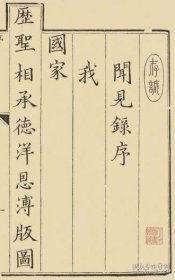 聞見錄序
我
國家
歴聖相承德洋恩溥版圖